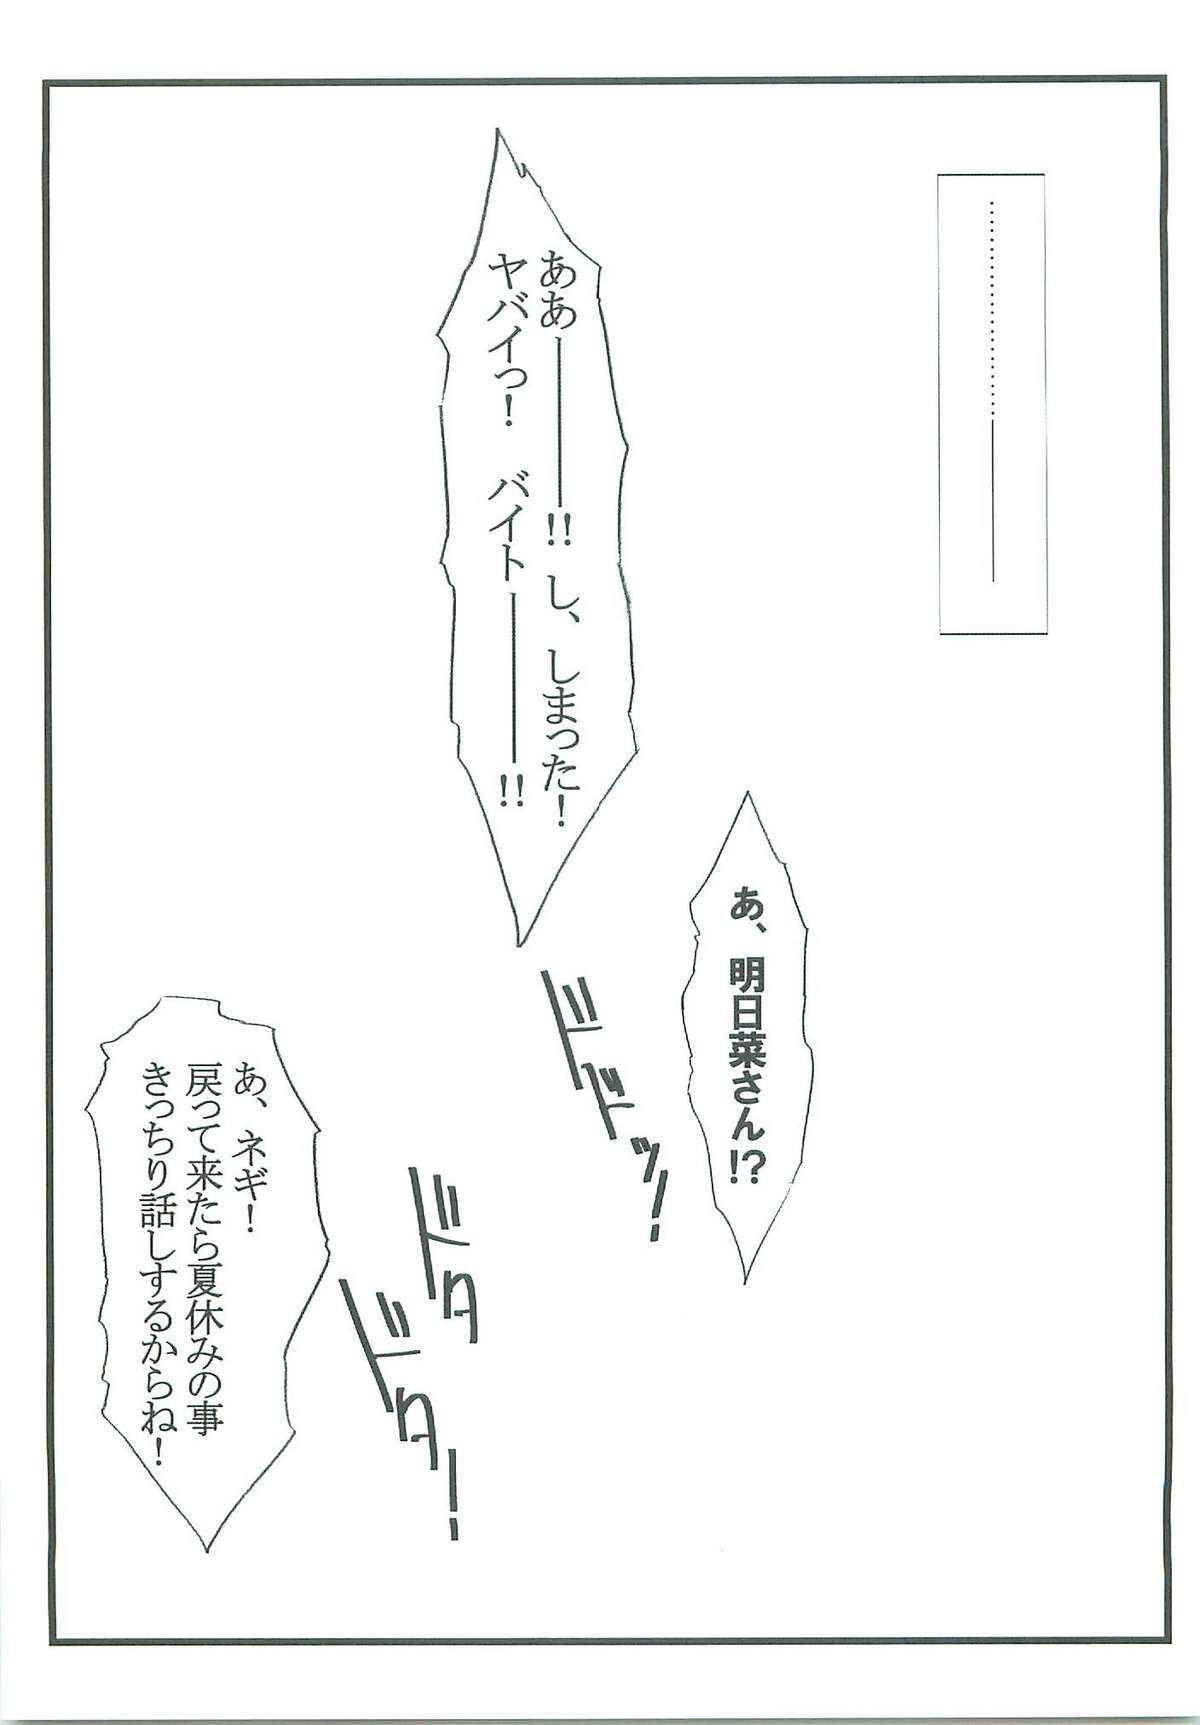 …………………―――
ああ―――!! し、しまった！
ヤバイっ！　バイト―――!!
あ、明日菜さん!?
ドドドッ！
ドタ
ドタ！
あ、ネギ！
戻って来たら夏休みの事
きっちり話しするからね！